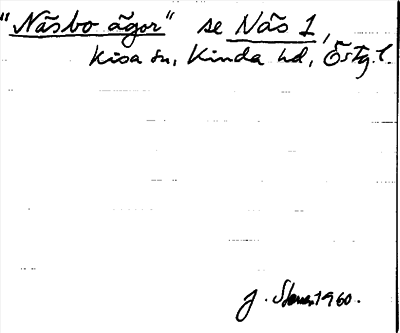 "Näsbo ägor" se Näs 1,
Kisa sn, Kinda hd, Östg. l.
J. 1960.